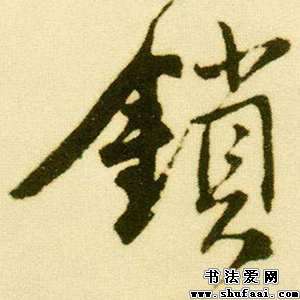 鎖
书法爱网
www.shufaai.com